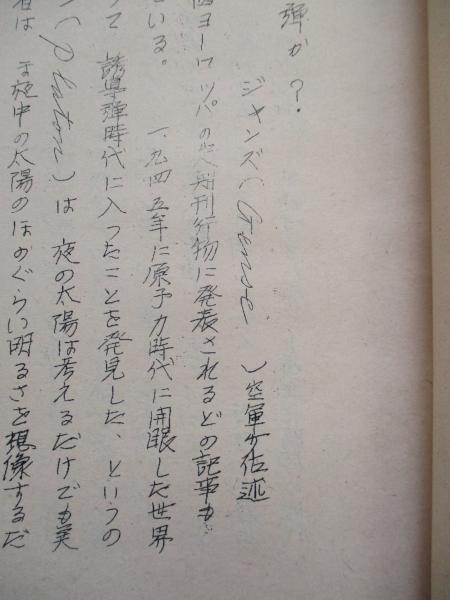 弾か?
ジャンズ(Gense )空軍少佐述
ヨーロッパの定期刊行物に発表されるどの記事も
いる。 一九四五年に原子力時代に開眼した世界
って 誘導弾時代に入ったことを発見した、というの
(Platon)は 夜の太陽は考えるだけでも美
は 夜中の太陽のほのぐらい明るさを想像するだ